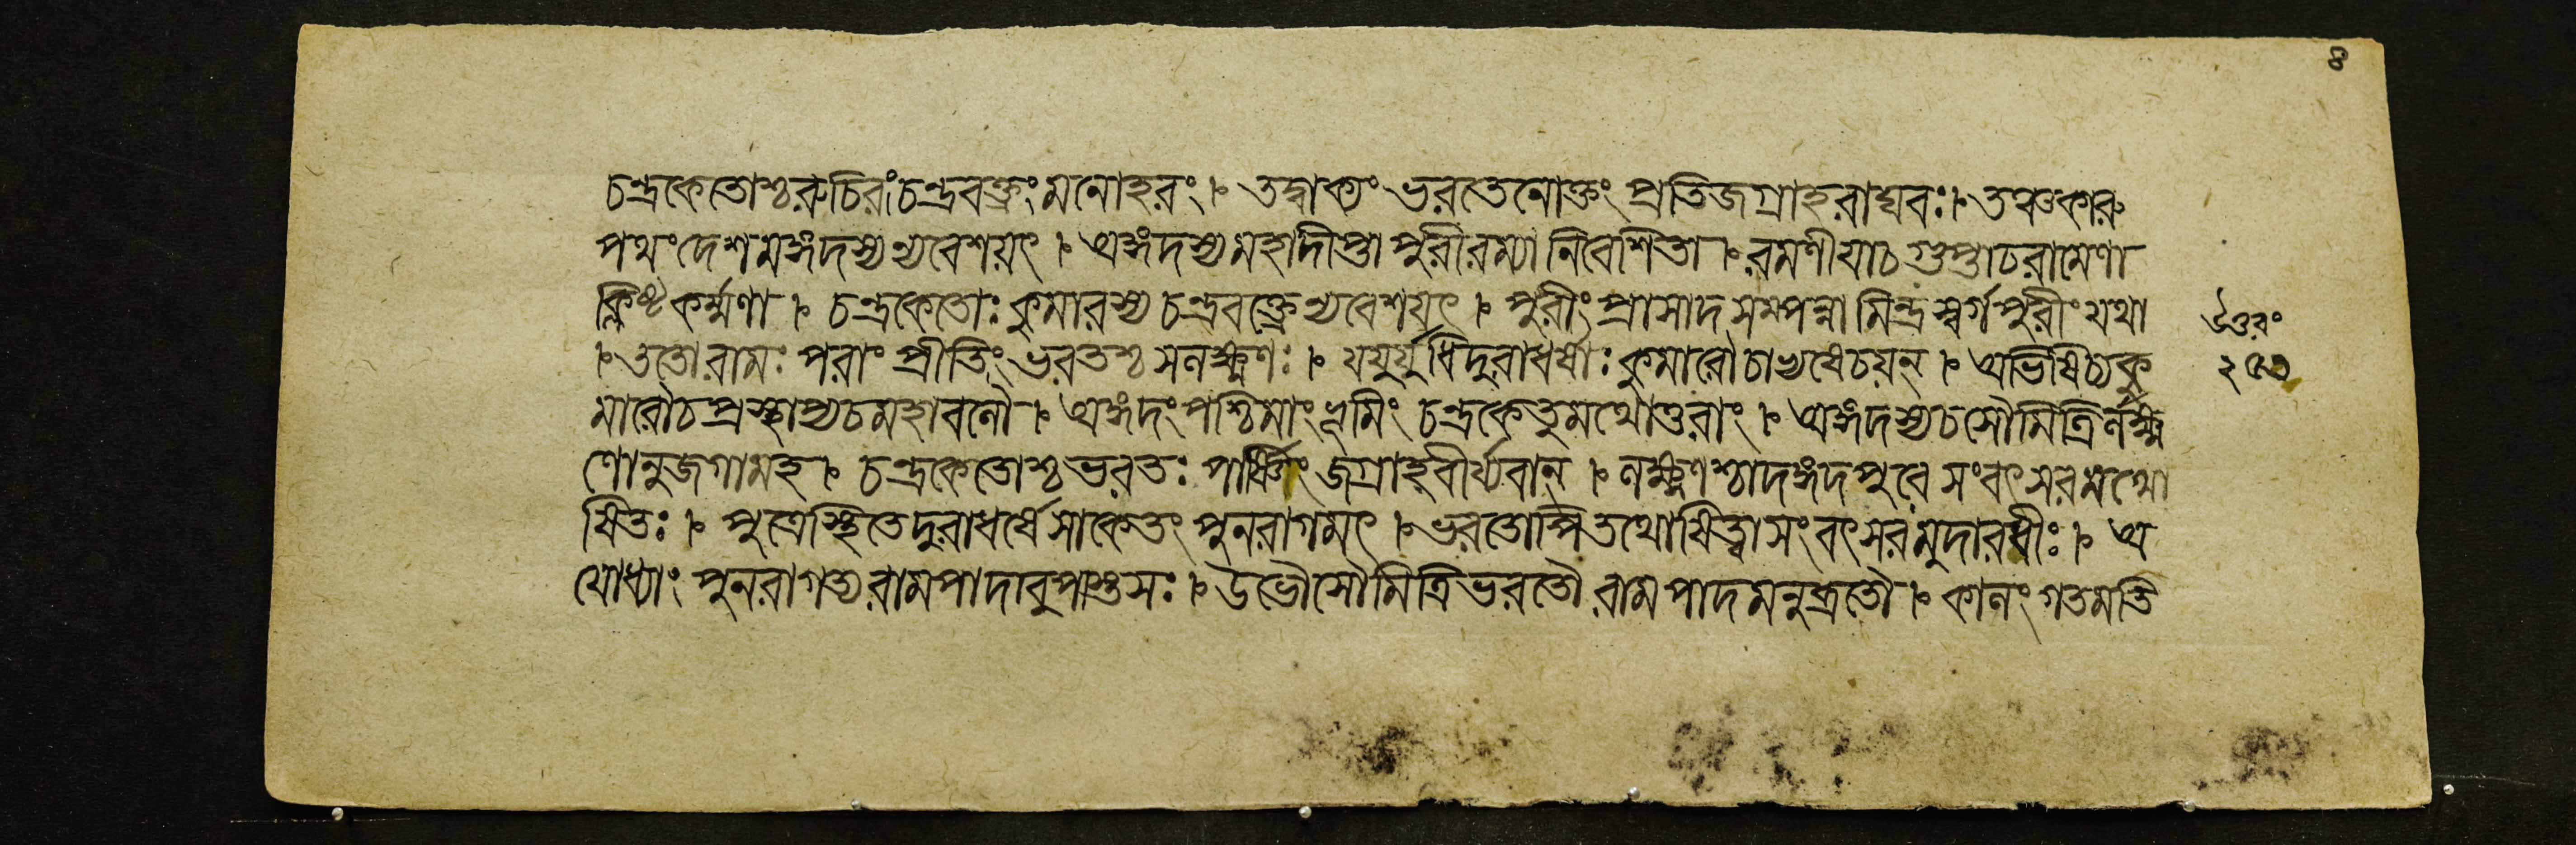 ৪
চন্দ্রকেতোশ্চরুচিরংচন্দ্রবক্ত্রংমনোহরং।ঃ তদ্বাক্যং ভরতেনোক্তং প্রতিজগ্রাহরাঘবঃ।ঃতঞ্চকারু
পথংদেশমঙ্গদস্যন্যবেশয়ৎ।ঃ অঙ্গদস্যমহাদীপ্তা পুরীরম্যানিবেশিতা।ঃরমণীয়াচগুপ্তাচরামেণা
ক্লিষ্টকর্ম্মণা।ঃ চন্দ্রকেতোঃকুমারস্যচন্দ্রবক্ত্রেন্যবেশয়ৎ।ঃ পুরীংপ্রাসাদসম্পন্নামিন্দ্রস্বর্গপুরীংযথা
।ঃততোরামঃ পরাং প্রীতিংভরতশ্চসলক্ষ্মণঃ।ঃ যযুর্যুধিদুরাধর্ষাঃকুমারৌচাভ্যষেচয়ন্।ঃ অভিষিচ্যকু
মারৌচপ্রস্থাপ্যচমহাবলৌ।ঃ অঙ্গদংপশ্চিমাংভূমিং চন্দ্রকেতুমথোত্তরাং।ঃ অঙ্গদস্যচসৌমিত্রির্লক্ষ্ম
ণোনুজগামহ।ঃ চন্দ্রকেতোশ্চভরতঃ পার্ষ্ণিংজগ্রাহবীর্য্যবান্।ঃ লক্ষ্মণশ্চাদঙ্গদপুরে সংবৎসরমথো
ষিতঃ।ঃ পুত্রেস্থিতেদুরাধর্ষেসাকেতং পুনরাগমৎ।ঃভরতোপিতথোষিত্বাসংবৎসরমুদারধীঃ।ঃ অ
যোধ্যাং পুনরাগত্যরামপাদাবুপাস্তসঃ।ঃউভৌসৌমিত্রিভরতৌ রামপাদমনুব্রতৌ।ঃ কালংগতমতি
উত্তরং
২৫৩